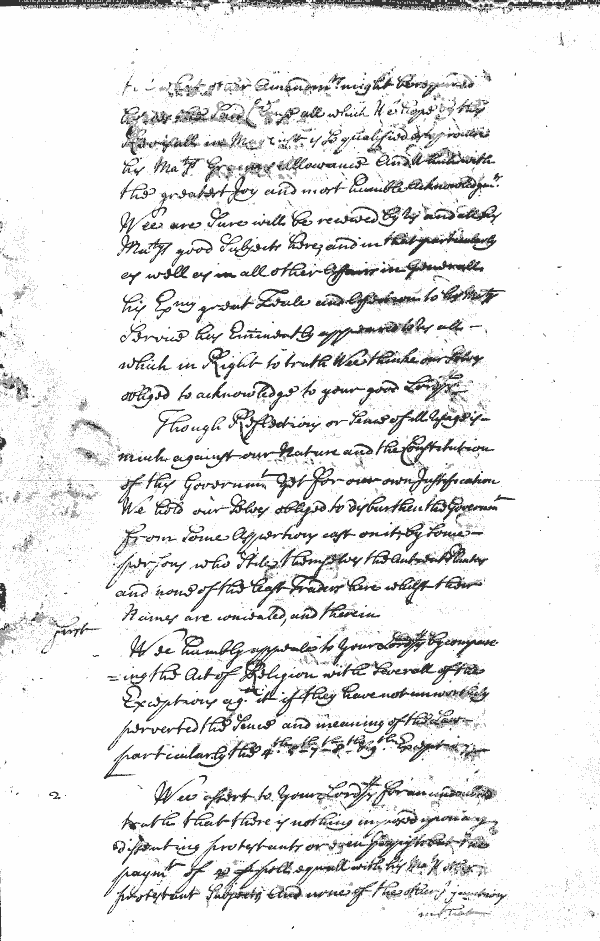 what other Amendmts might be
all which We hope
qualified
his Matys Gracious Allowance And which with
the greatest Joy and most humble acknowledgmt
Wee are Sure will be received by Us and all his
Matys good Subjects here, and in that particularly
as well as in all other Affairs in Generall
his Exny great Zeale and affection to his Matys
Service has Eminently appeared to Us all –
which in Right to truth Wee thinke our Selves
obliged to acknowledge to your good Lordspps
Though Reflections or Sence of ill Usage is –
much against our Nature and the Constitution
of this Governmt Yet for our own Justification
We hold our Selves obliged to disburthen the Governmt
from some Assertions cast on it by some –
persons who Stile themselves the Antient Planters
and none of the least Traders here whilst their
Names are concealed, and therein
First
Wee humbly appeale to Your Lordspps by compare
=ing the Act of Religion with Severall of the
Exceptions agt it if they have not unworthily
perverted the Sence and meaning of the Law
particularly the 4th 5th 7th 8th & 9th Exceptions
2
Wee assert to Your Lordspps for an undoubted
truth that there is nothing imposed upon any
dissenting protestants or even papists but the
paymt of pr poll equall with his Matys other
protestant Subjects And none of the